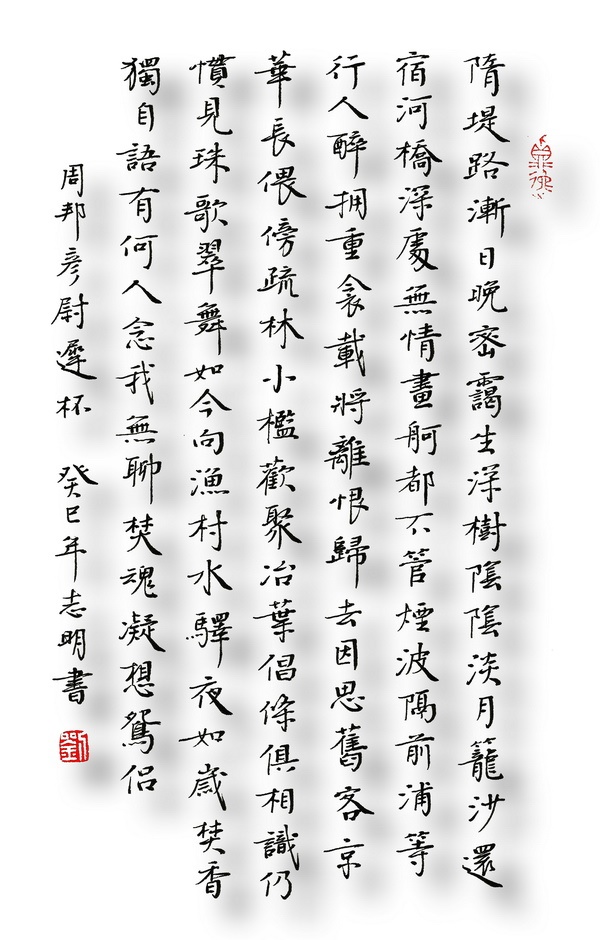 隋堤路漸日晚密靄生深樹陰陰淡月籠沙還
宿河橋深處無情畫舸都不管煙波隔前浦等
行人醉拥重衾載將離恨歸去因思舊客京
華長偎傍疏林小檻歡聚冶葉倡條俱相識仍
慣見珠歌翠舞如今向漁村水驛夜如歲焚香
獨自語有何人念我無聊焚魂凝想鴛侶
周邦彥尉遲杯 癸巳年志明書
劉